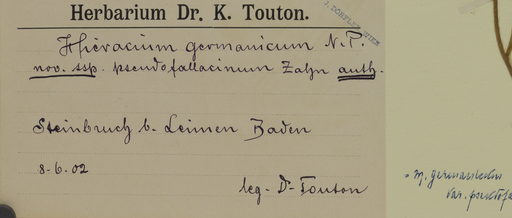 Herbarium Dr. K. Touton.
J. DÖRFLER, WIEN
Hieracium germanicum N.P.
nov. ssp. pseudofallacinum Zahn auth.
Steinbruch b. Leimen Baden
8-6.02
leg. Dr Touton
germanicum
var. pseudofa